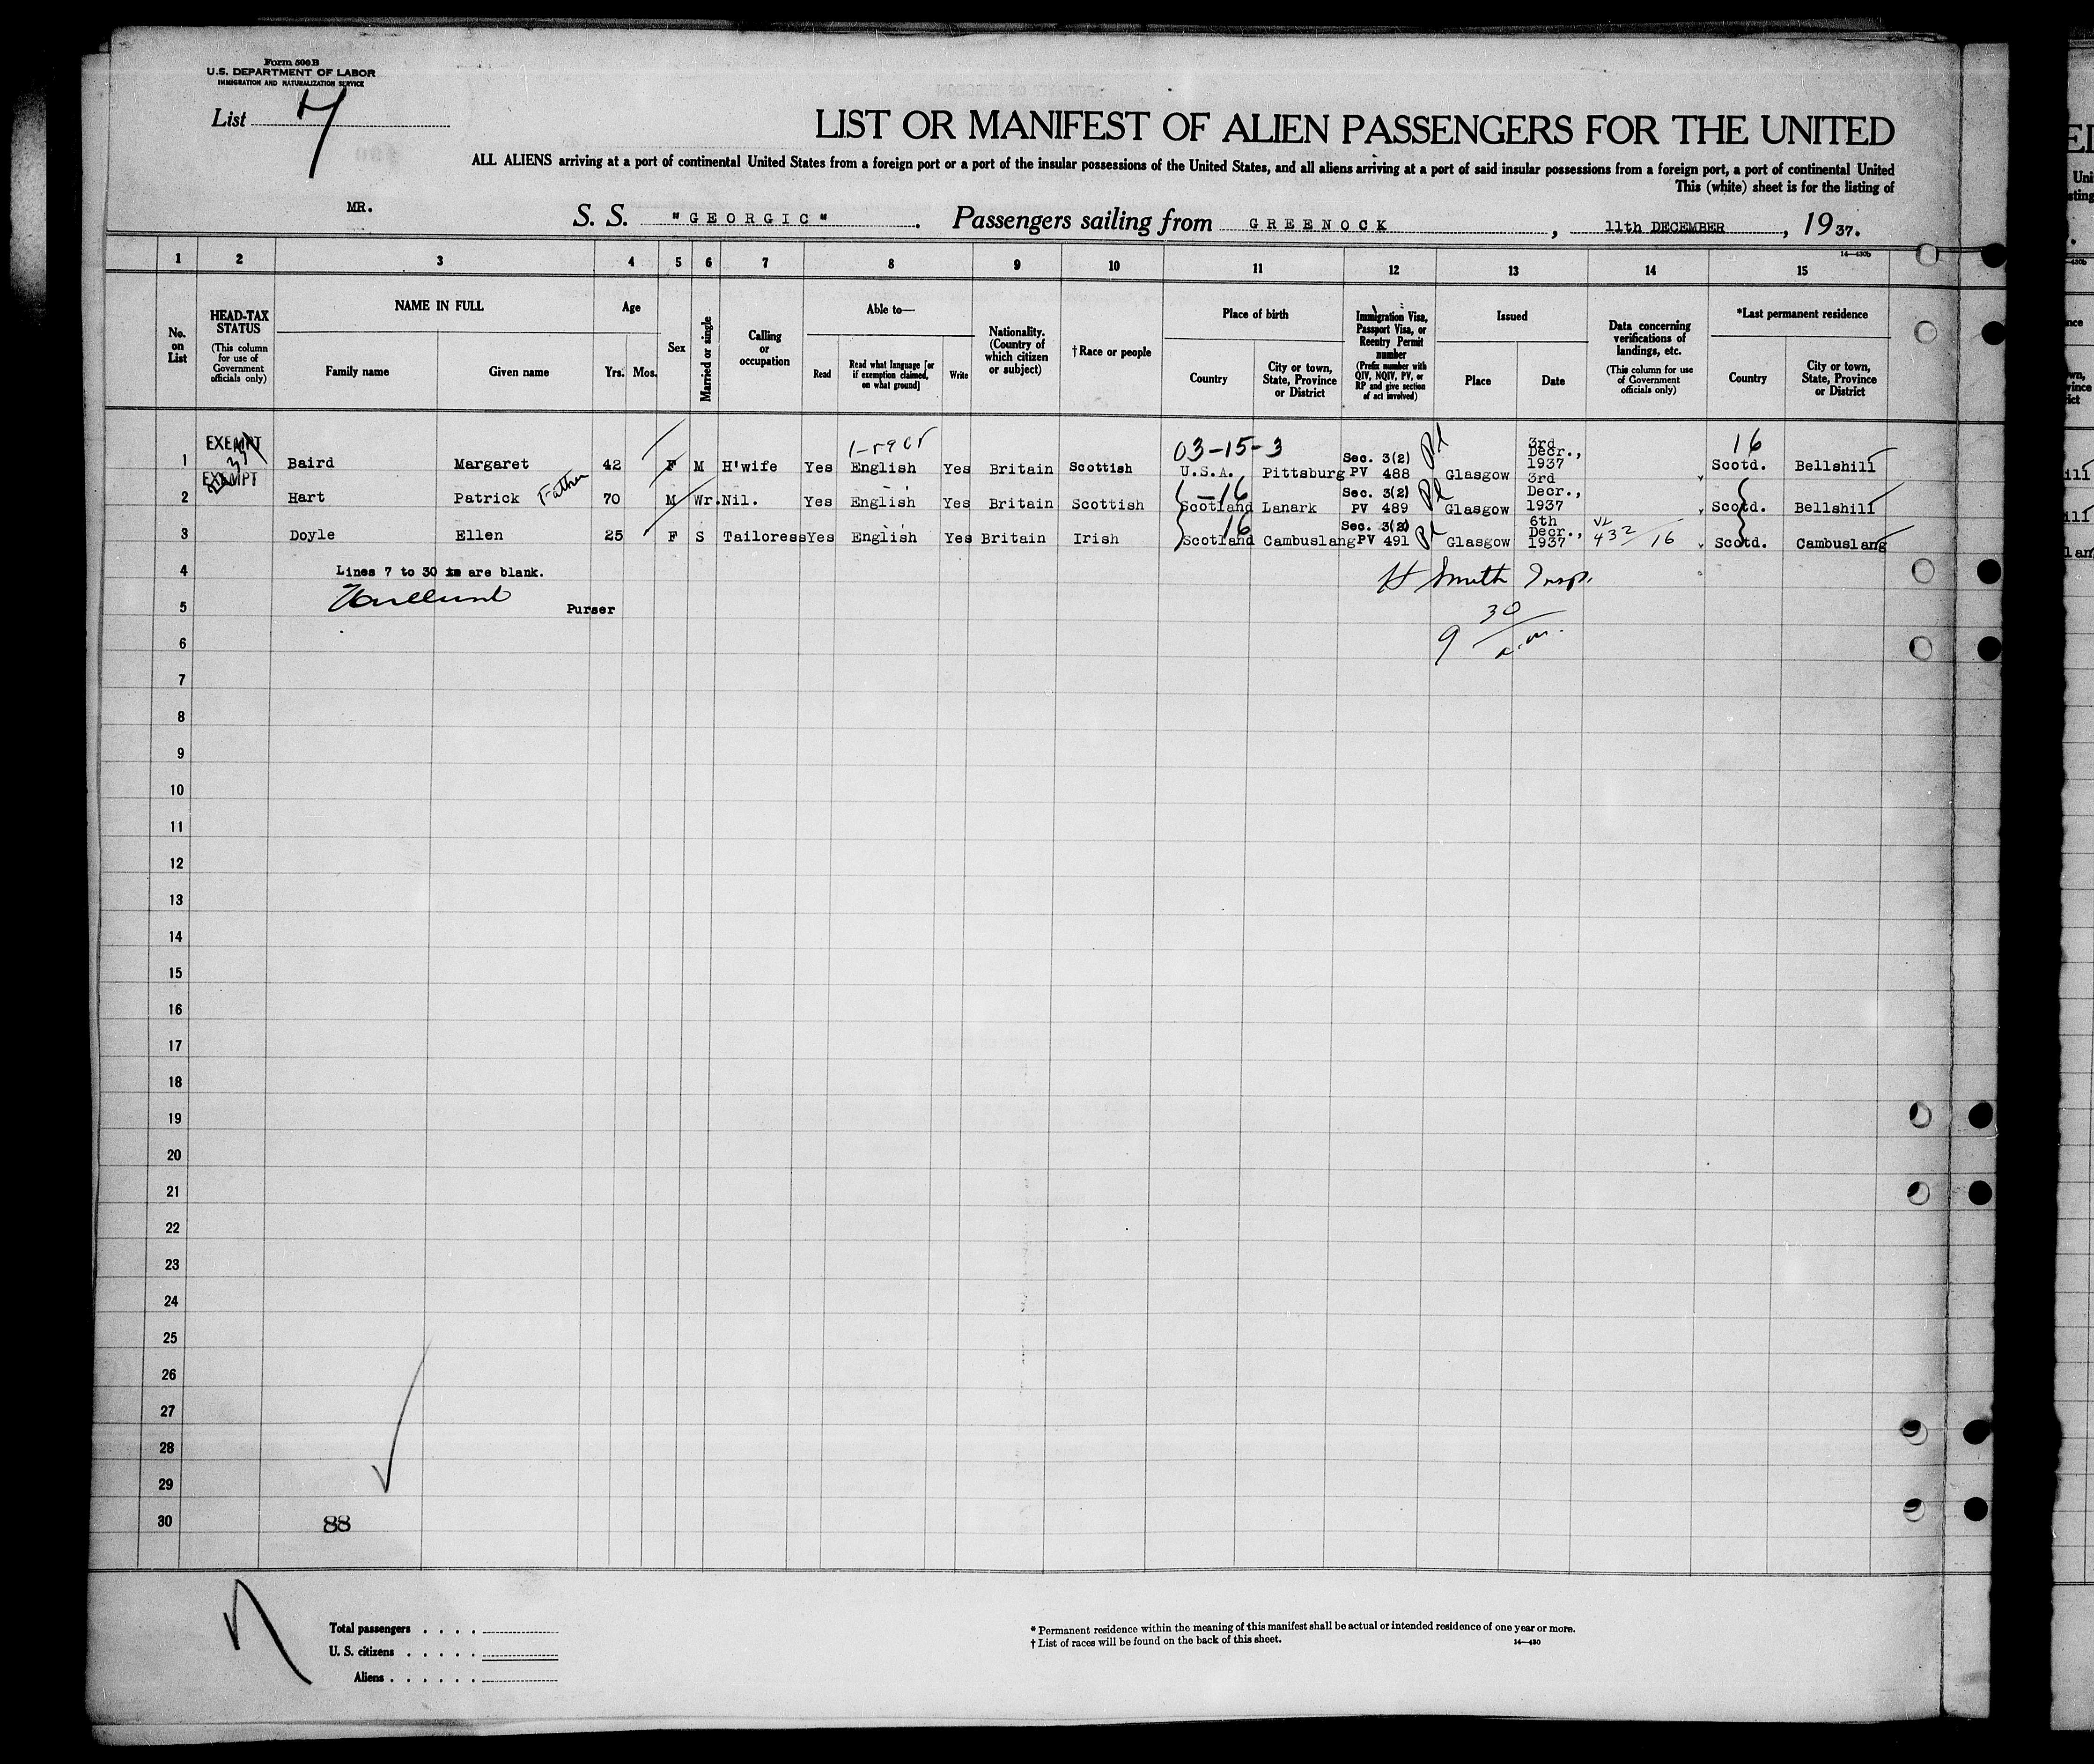 Form 500 B
U.S. DEPARTMENT OF LABOR
IMMIGRATION AND NATURALIZATION SERVICE
List 7
LIST OR MANIFEST OF ALIEN PASSENGERS FOR THE UNITED
ALL ALIENS arriving at a port of continental United States from a foreign port or a port of the insular possessions of the United States, and all aliens arriving at a port of said insular possessions from a foreign port, a port of continental United
This (white) sheet is for the listing of
MR.
S. S. "GEORGIC". Passengers sailing from GREENOCK, 11th DECEMBER, 1937.
14—430b
1 2 3 4 5 6 7 8 9 10 11 12 13 14 15
No. on List
HEAD-TAX STATUS (This column for use of Government officials only)
NAME IN FULL Family name Given name
Age Yrs. Mos.
Sex
Married or single
Calling or occupation
Able to— Read Read what language [or if exemption claimed, on what ground] Write
Nationality. (Country of which citizen or subject)
†Race or people
Place of birth Country City or town, State, Province or District
Immigration Visa, Passport Visa, or Reentry Permit number (Prefix number with QIV, NQIV, PV, or RP and give section of act involved)
Issued Place Date
Data concerning verifications of landings, etc. (This column for use of Government officials only)
*Last permanent residence Country City or town, State, Province or District
EXEMPT 03-15-3 16
1 Baird Margaret 42 F M H'wife Yes English Yes Britain Scottish U.S.A. Pittsburg Sec. 3(2) PV 488 Glasgow 3rd Decr., 1937 Scotd. Bellshill
EXEMPT -16
2 Hart Patrick Father 70 M Wr. Nil. Yes English Yes Britain Scottish Scotland Lanark Sec. 3(2) PV 489 Glasgow 3rd Decr., 1937 Scotd. Bellshill
16
3 Doyle Ellen 25 F S Tailoress Yes English Yes Britain Irish Scotland Cambuslang Sec. 3(2) PV 491 Glasgow 6th Decr., 1937 432/16 Scotd. Cambuslang
4 Lines 7 to 30 are blank. H Smith Insp.
5 Purser
9 30 a.m.
6
7
8
9
10
11
12
13
14
15
16
17
18
19
20
21
22
23
24
25
26
27
28
29
30 88
Total passengers
U. S. citizens
Aliens
* Permanent residence within the meaning of this manifest shall be actual or intended residence of one year or more.
† List of races will be found on the back of this sheet.
14—430